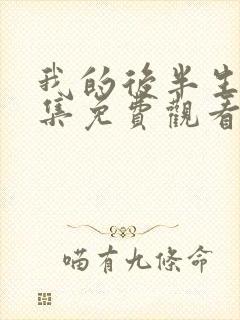 我的後半生
集免費觀看
喵有九條命